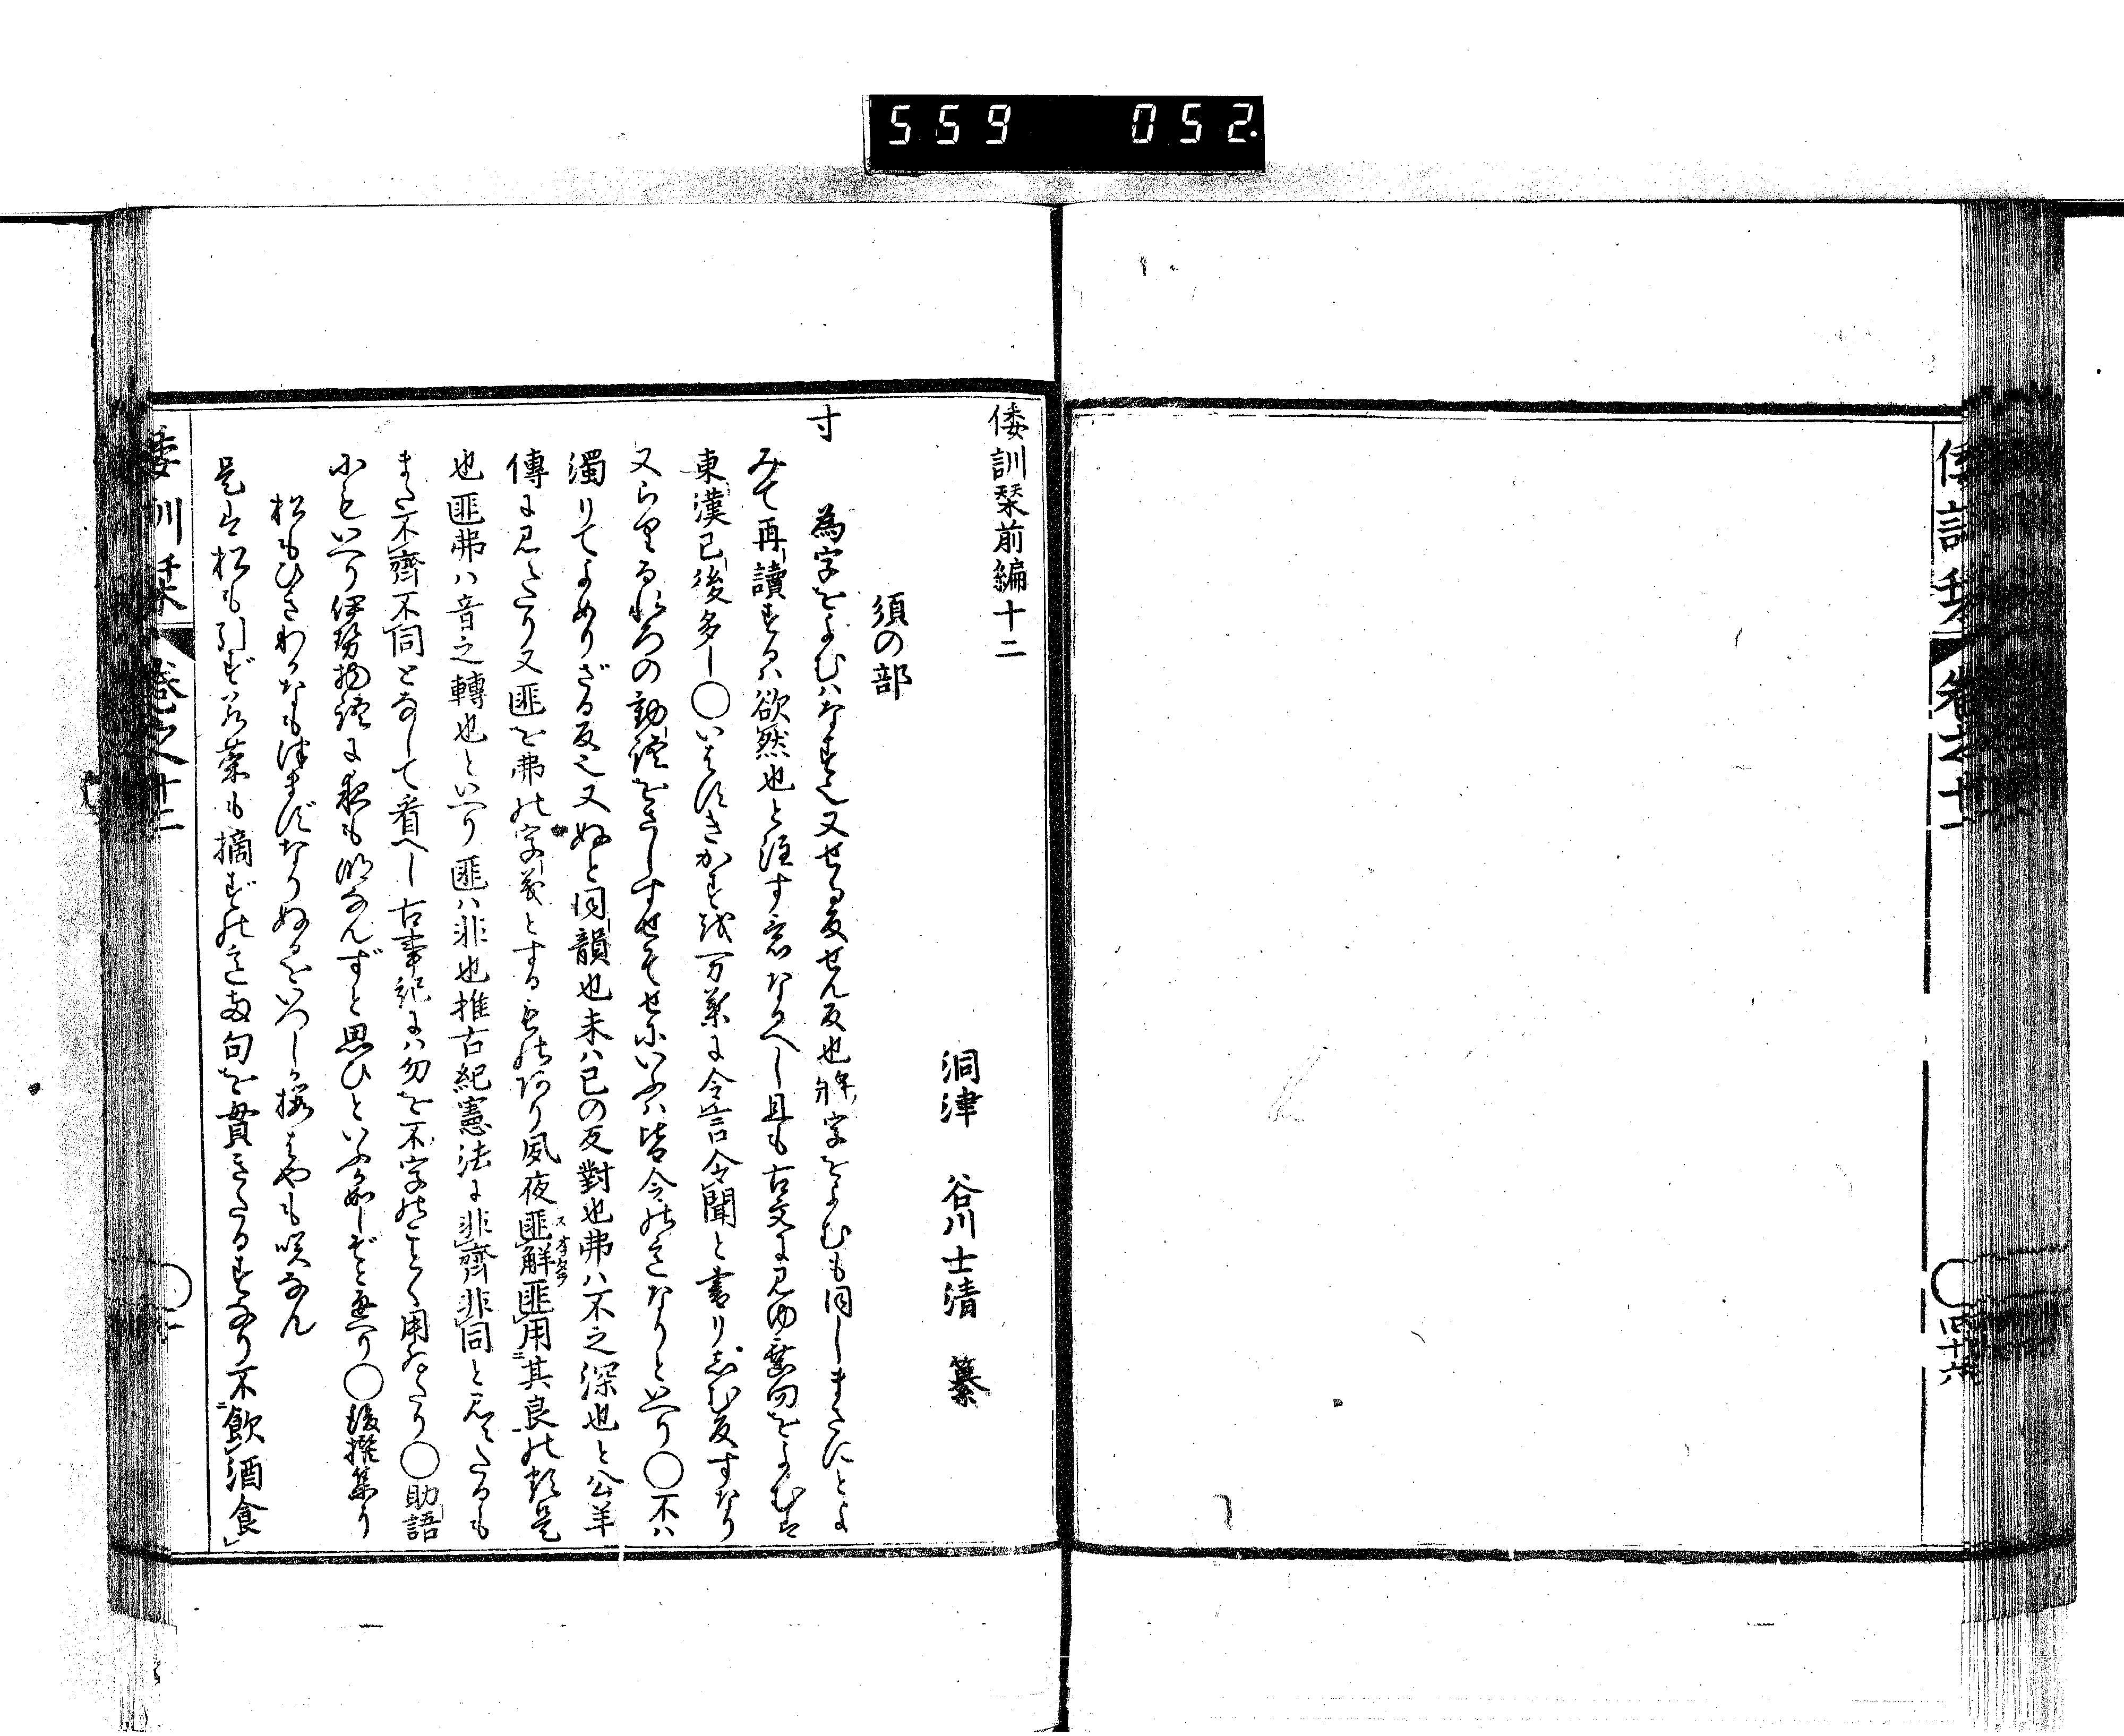 559 052
倭訓栞前編十二
洞津 谷川士清 纂
須の部
す 為字をよむハなす也又せる反せん反也将字をよむも同しまさにとよ
みて再讀するハ欲然也と注す意なるへし且も古文に見ゆ应句をよむは
東漢已後多し○いはすきかすを万葉に令言令聞と書りしむ反すなり
又らりるれろの動語をさしすせそせにいふハ皆令の意なりといへり○不ハ
濁りてよめりざる反也又ぬと同韻也未ハ已の反對也弗ハ不之深也と公羊
傳に見えたり又匪を弗の字義とするものあり夙夜匪解匪用其良の類是
也匪弗ハ音之轉也といへり匪ハ非也推古紀憲法に非齊非同と見えたるも
また不齊不同となして看へし古事記にハ勿を不字のことく用ゐたり○助語
にもいへり伊勢物語に夜も明なんずと思ひといふか如しぞと通へり○後撰集に
松もひきわかなもつまずなりぬるをいつしか桜はやも咲なん
是は松も引ず若菜も摘ずの意両句を貫きたるすなり不飲酒食
倭訓栞 巻之十二
○一
倭訓栞 巻之十一
○四十六